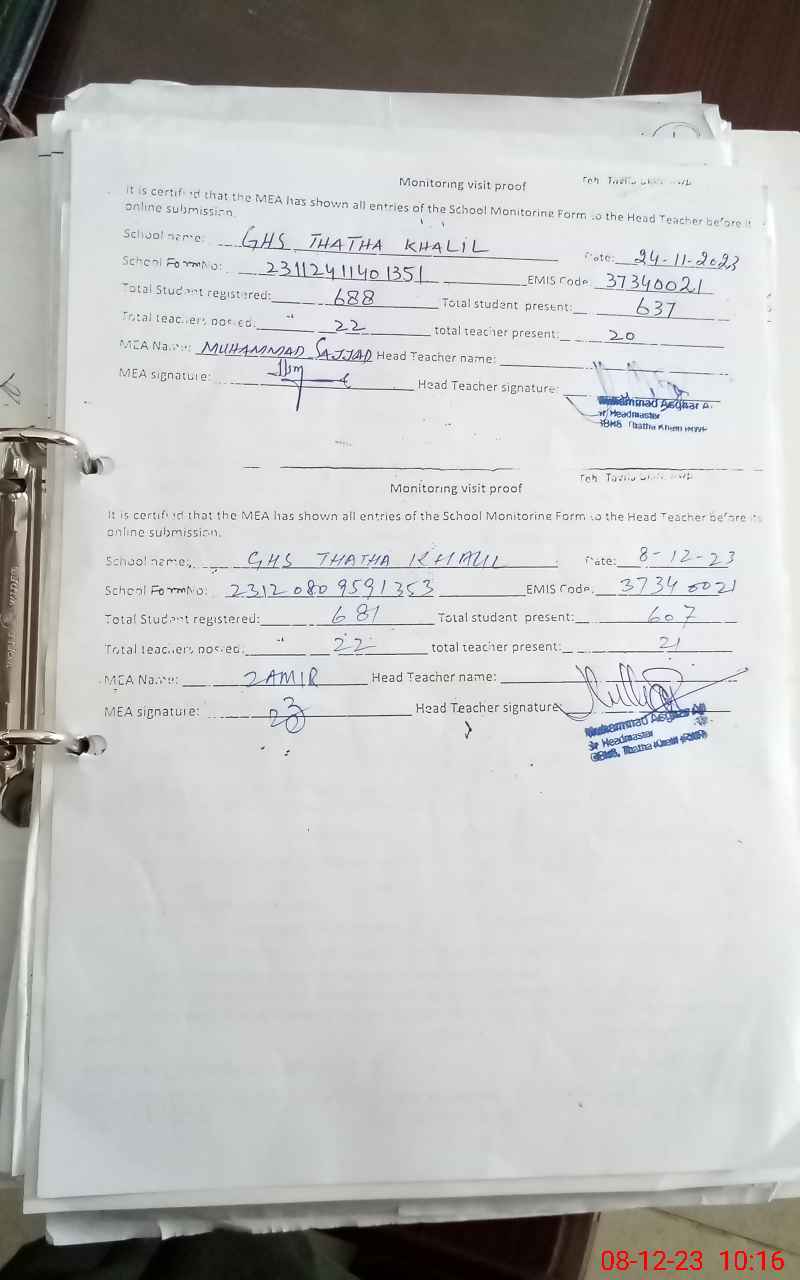 Monitoring visit proof
It is certified that the MEA has shown all entries of the School Monitoring Form to the Head Teacher before it
online submission.
School name: GHS THATHA KHALIL Date: 24-11-2023
School Form No: 23112411401351 EMIS Code: 37340021
Total Student registered: 688 Total student present: 637
Total teachers posted: 22 total teacher present: 20
MEA Name: MUHAMMAD SAJJAD Head Teacher name:
MEA signature: Head Teacher signature:
Muhammad Asghar A
Sr Headmaster
Thatha Khalil
Monitoring visit proof
It is certified that the MEA has shown all entries of the School Monitoring Form to the Head Teacher before its
online submission.
School name: GHS THATHA KHALIL Date: 8-12-23
School Form No: 23120809591353 EMIS Code: 37340021
Total Student registered: 681 Total student present: 607
Total teachers posted: 22 total teacher present: 21
MEA Name: ZAMIR Head Teacher name:
MEA signature: Head Teacher signature
Muhammad Asghar Ali
Sr Headmaster
Thatha Khalil
08-12-23 10:16